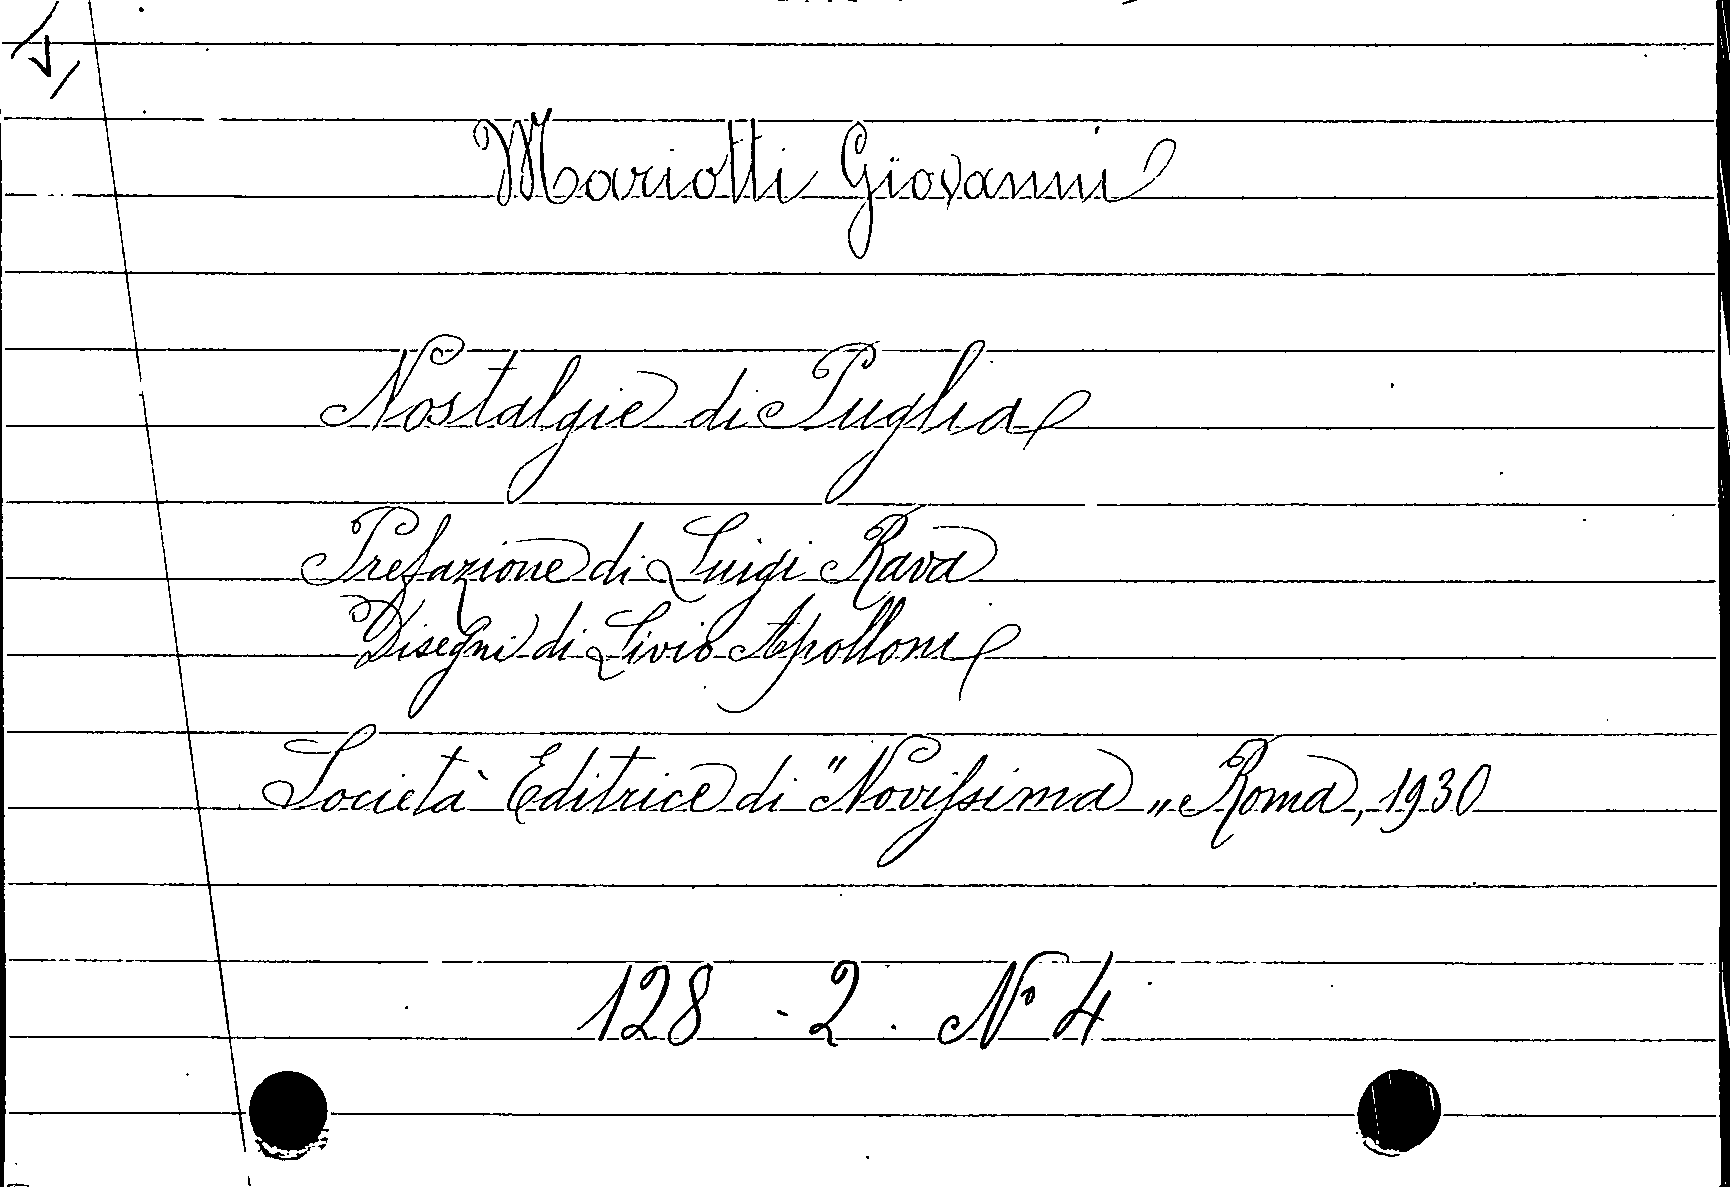 Mariotti Giovanni
Nostalgie di Puglia
Prefazione di Luigi Rava
Disegni di Livio Apolloni
Società Editrice di "Novissima„ Roma, 1930
128 - 2. No 4